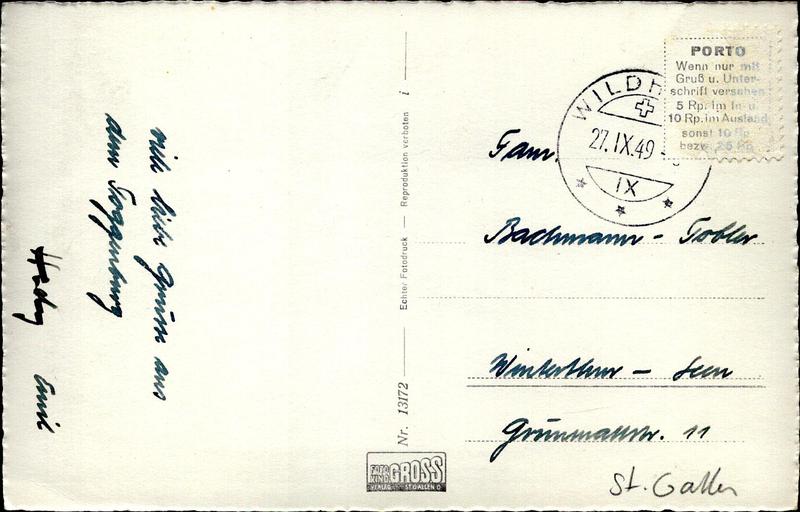 viele liebe Grüsse aus
dem Toggenburg
Hedy Emil
Nr. 13172
Echte Fotodruck — Reproduktion verboten i
FOTO
KIND GROSS
VERLAG ST.GALLEN O
WILDH
27.IX.49
IX
PORTO
Wenn nur mit
Gruß u. Unter-
schrift versehen
5 Rp. im In- u.
10 Rp. im Ausland
sonst 10 Rp
bezw. 25 Rp.
Fam.
Bachmann - Tobler
Winterthur - Seen
Grünmattstr. 11
St. Gallen